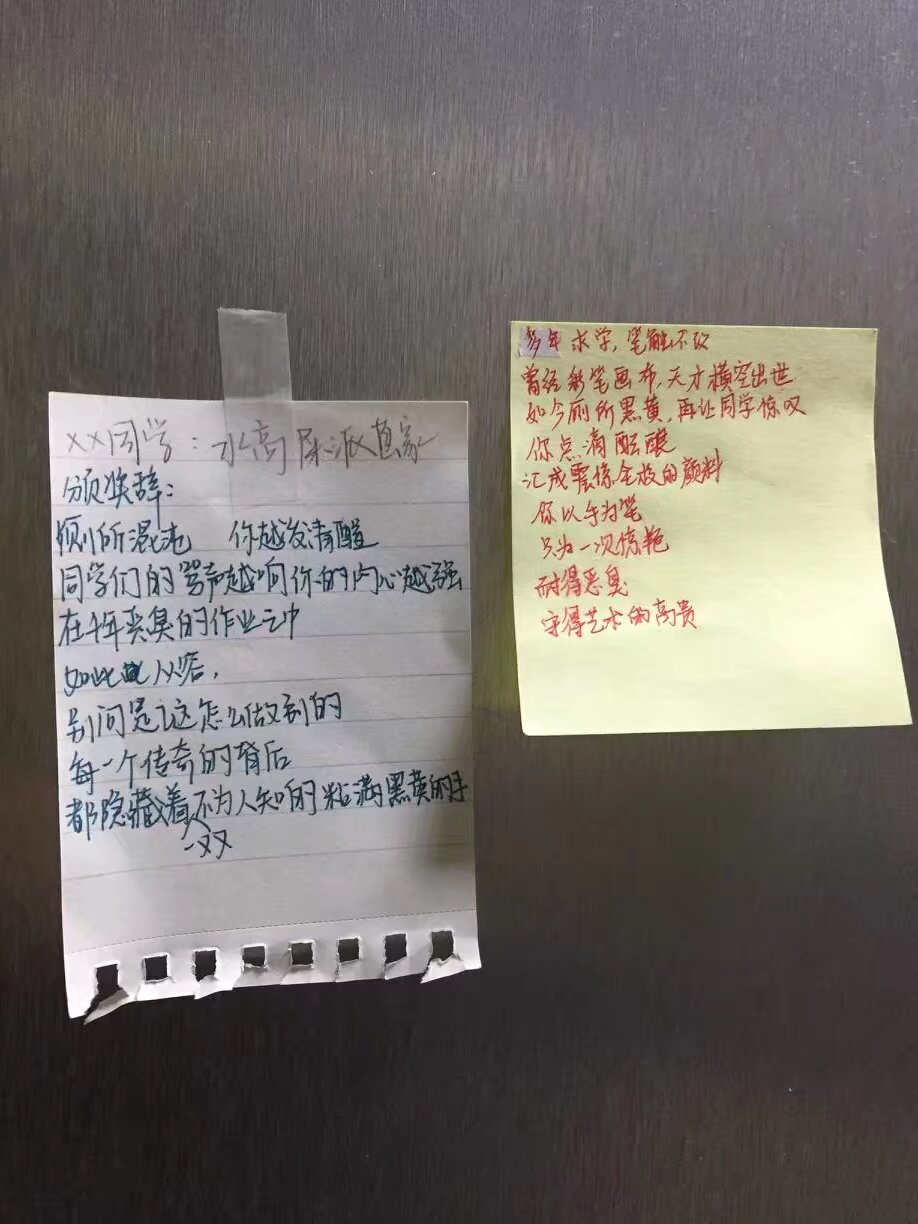 ××同学：水高屎派画家
颁奖辞：
厕所混沌 你越发清醒
同学们的骂声越响你的内心越强
在千年恶臭的作业之中
如此从容，
别问是这怎么做到的
每一个传奇的背后
都隐藏着不为人知的粘满黑黄的手
一双
多年求学，笔触不改
曾经彩笔画布，天才横空出世
如今厕所黑黄，再让同学惊叹
你点滴酝酿
汇成震惊全校的颜料
你以手为笔
只为一次惊艳
耐得恶臭
守得艺术的高贵